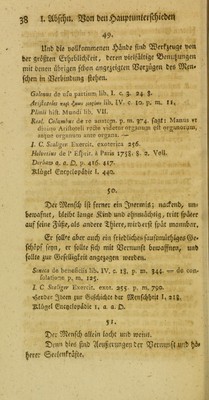 38 I. Abschn. Von den Hauptunterschieden
49.
Und die vollkommenen Hände sind Werkzeuge von
der größten Erheblichkeit, deren vielfältige Benutzungen
mit denen übrigen schon angezeigten Vorzügen des Men-
schen in Verbindung stehen.
Galenus de usu partium lib. I. c. 3. 24. §.
Aristoteles lib. IV. c. 10. p. m. 12.
Plinii hist. Mundi lib. VII.
Real. Columbus de re anatom. p. m. 374. sagt: Manus et
divino Aristoteli recte videtur organum est organorum,
atque organum ante organa. —
I. C. Scaliger Exercit. exoterica 256.
Helvetius de l' Esprit. à Paris 1758. 8. 2. Voll.
Derham a. a. O. p. 416. 417.
Klügel Encyclopädie I. 440.
50.
Der Mensch ist ferner ein Inermis; nackend, un-
bewafnet, bleibt lange Kind und ohnmächtig, tritt später
auf seine Füße, als andere Thiere, wird erst spät mannbar.
Er sollte aber auch ein friedliches sanftmüthiges Ge-
schöpf seyn, er sollte sich mit Vernunft bewaffnen, und
sollte zur Geselligkeit angezogen werden.
Seneca de beneficiis lib. IV. c. 18. p. m. 344. — de con-
solatione p. m. 123.
I. C Scaliger Exercit. exot. 255. p. m. 790.
Herder Ideen zur Geschichte der Menschheit I. 218.
Klügel Encyclopädie I. a. a. O.
51.
Der Mensch allein lacht und weint.
Denn dies sind Aeußerungen der Vernunft und hö-
herer Seelenkräfte.